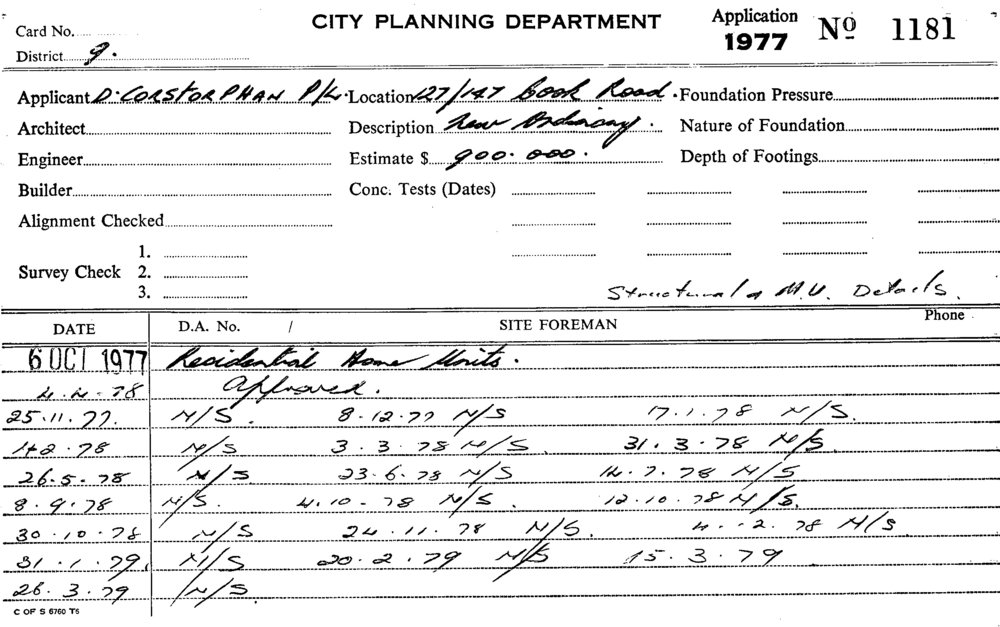 CITY PLANNING DEPARTMENT
Application 1977 No 1181
Card No.
District 9.
Applicant D. CORSTORPHAN P/L. Location 127/147 Cook Road. Foundation Pressure
Architect Description New Ordinary. Nature of Foundation
Engineer Estimate $ 900.000. Depth of Footings
Builder Conc. Tests (Dates)
Alignment Checked
Survey Check 1.
2.
3.
Structural & M.V. Details.
DATE D.A. No. / SITE FOREMAN Phone
6 OCT 1977 Residential Home Units.
4.4.78 Approved.
25.11.77. N/S. 8.12.77 N/S 17.1.78 N/S.
14.2.78 N/S 3.3.78 N/S 31.3.78 N/S
26.5.78 N/S 23.6.78 N/S 14.7.78 N/S
8.9.78 N/S. 4.10.78 N/S. 12.10.78 N/S.
30.10.78 N/S 24.11.78 N/S. 78 N/S
31.1.79. N/S 20.2.79 N/S 15.3.79
26.3.79 N/S.
C OF S 6760 T6